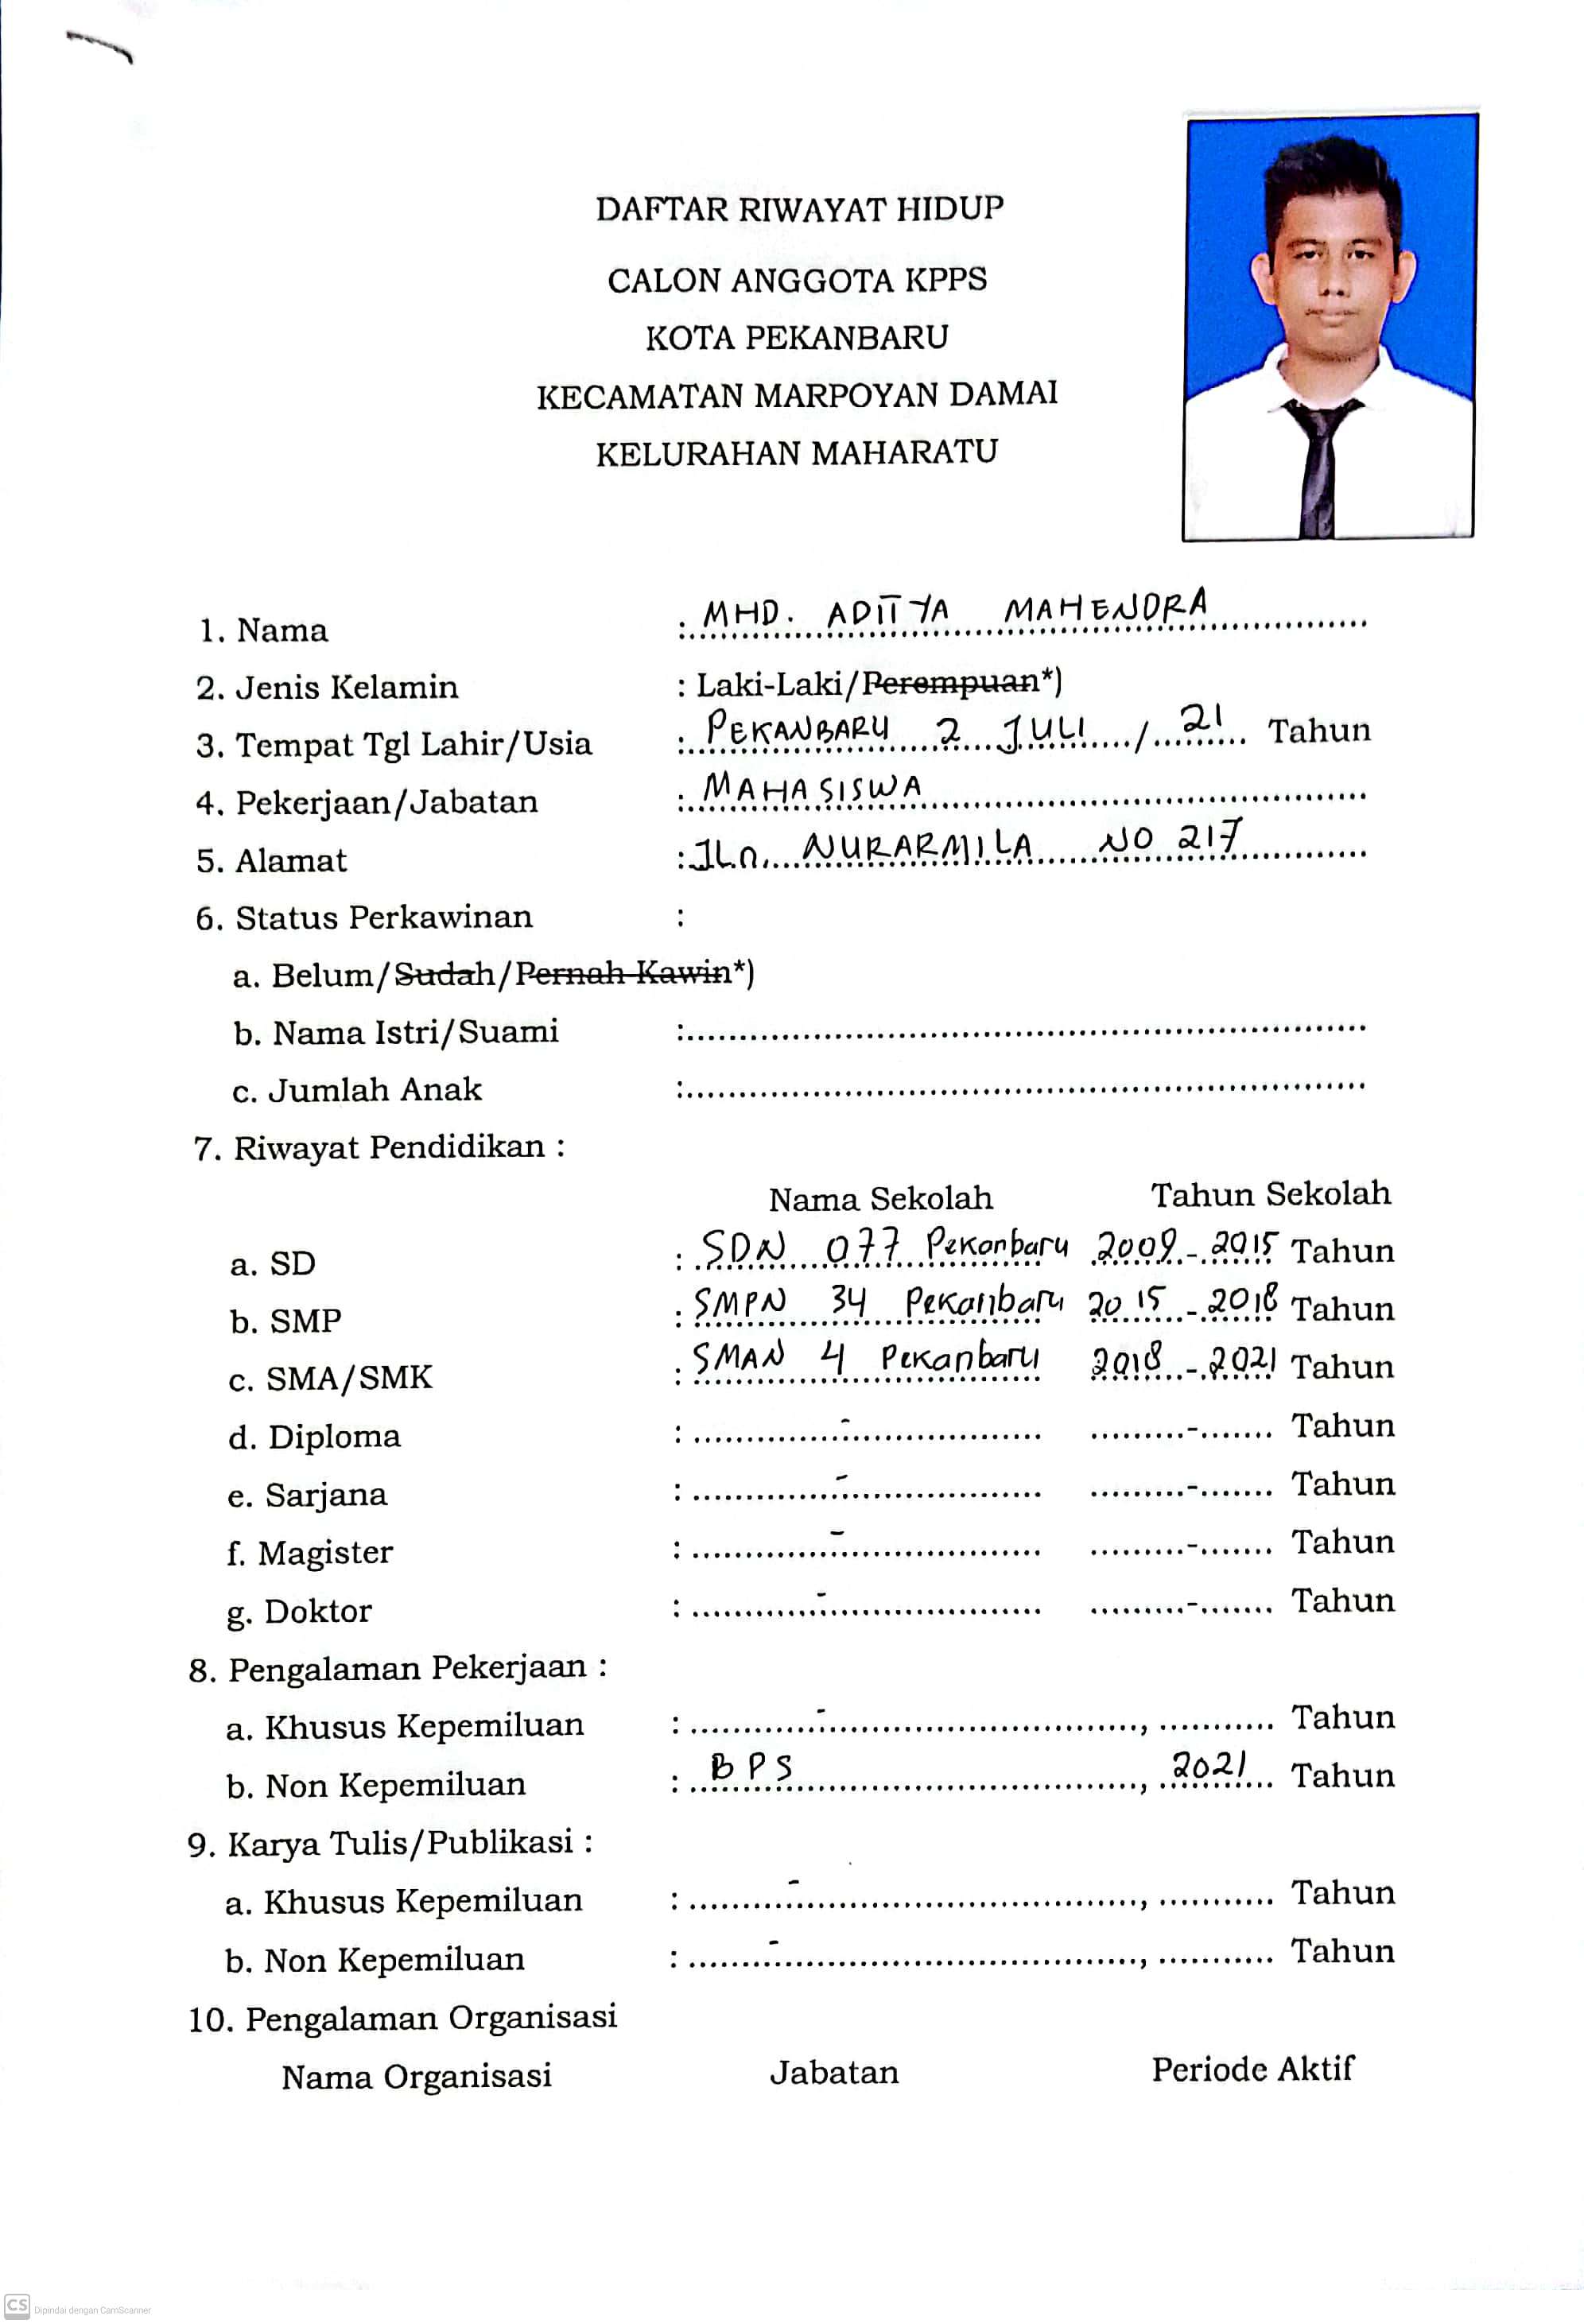 DAFTAR RIWAYAT HIDUP
CALON ANGGOTA KPPS
KOTA PEKANBARU
KECAMATAN MARPOYAN DAMAI
KELURAHAN MAHARATU
1. Nama : MHD. ADITYA MAHENDRA
2. Jenis Kelamin : Laki-Laki/Perempuan*)
3. Tempat Tgl Lahir/Usia : PEKANBARU 2 JULI / 21 Tahun
4. Pekerjaan/Jabatan : MAHASISWA
5. Alamat : JLn. NURARMILA NO 217
6. Status Perkawinan :
a. Belum/Sudah/Pernah Kawin*)
b. Nama Istri/Suami :
c. Jumlah Anak :
7. Riwayat Pendidikan :
Nama Sekolah Tahun Sekolah
a. SD : SDN 077 Pekanbaru 2009 - 2015 Tahun
b. SMP : SMPN 34 Pekanbaru 2015 - 2018 Tahun
c. SMA/SMK : SMAN 4 Pekanbaru 2018 - 2021 Tahun
d. Diploma : - - Tahun
e. Sarjana : - - Tahun
f. Magister : - - Tahun
g. Doktor : - - Tahun
8. Pengalaman Pekerjaan :
a. Khusus Kepemiluan : - , Tahun
b. Non Kepemiluan : BPS , 2021 Tahun
9. Karya Tulis/Publikasi :
a. Khusus Kepemiluan : - , Tahun
b. Non Kepemiluan : - , Tahun
10. Pengalaman Organisasi
Nama Organisasi Jabatan Periode Aktif
CS Dipindai dengan CamScanner